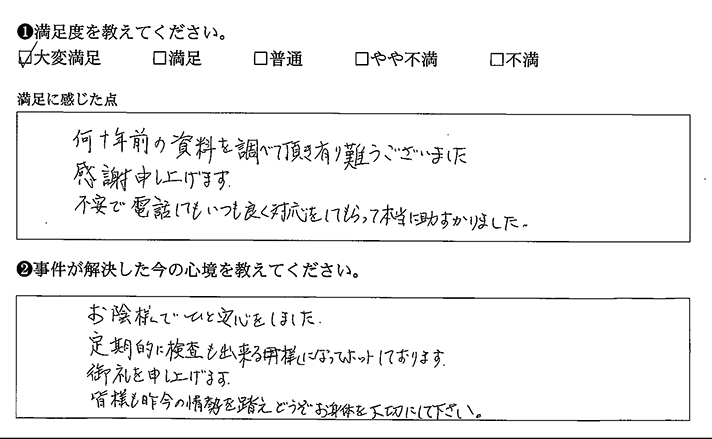 ❶満足度を教えてください。
☑大変満足 □満足 □普通 □やや不満 □不満
満足に感じた点
何十年前の資料を調べて頂き有り難うございました
感謝申し上げます.
不安で電話してもいつも良く対応をしてもらって本当に助すかりました.
❷事件が解決した今の心境を教えてください。
お陰様でひと安心をしました.
定期的に検査も出来る用様になってホットしております.
御礼を申し上げます.
皆様も昨今の情勢を踏えどうぞお身体を大切にして下さい。